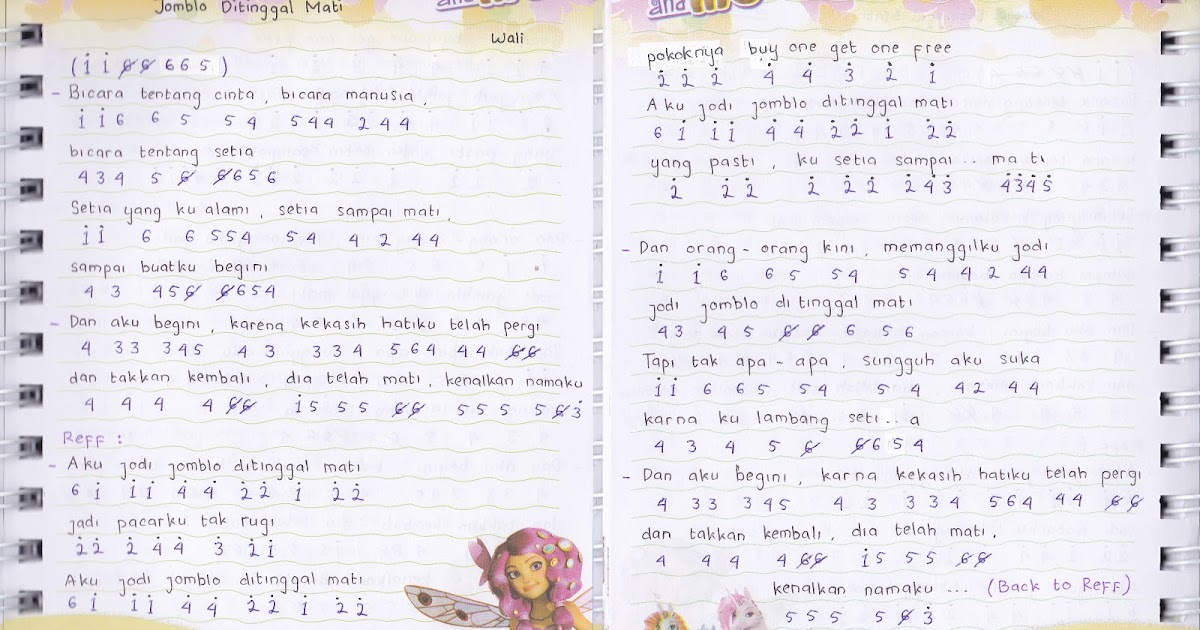 Jomblo Ditinggal Mati
Wali
(i̇ i̇ 6̸ 6̸ 6 6 5 .)
- Bicara tentang cinta , bicara manusia ,
i̇ i̇ 6 6 5 5 4 5 4 4 2 4 4
bicara tentang setia
4 3 4 5 6̸ 6̸ 6 5 6
Setia yang ku alami , setia sampai mati ,
i̇ i̇ 6 6 5 5 4 5 4 4 2 4 4
sampai buatku begini
4 3 4 5 6̸ 6̸ 6 5 4
- Dan aku begini , karena kekasih hatiku telah pergi
4 3 3 3 4 5 4 3 3 3 4 5 6 4 4 4 6̸ 6̸
dan takkan kembali , dia telah mati , kenalkan namaku
4 4 4 4 6̸ 6̸ i̇ 5 5 5 6̸ 6̸ 5 5 5 5 6̸ 3̇
Reff :
- Aku jodi jomblo ditinggal mati
6 i̇ i̇ i̇ 4̇ 4̇ 2̇ 2̇ i̇ 2̇ 2̇
jadi pacarku tak rugi
2̇ 2̇ 2̇ 4̇ 4̇ 3̇ 2̇ i̇
Aku jodi jomblo ditinggal mati
6 i̇ i̇ i̇ 4̇ 4̇ 2̇ 2̇ i̇ 2̇ 2̇
and
pokoknya buy one get one free
2̇ 2̇ 2̇ 4̇ 4̇ 3̇ 2̇ i̇
Aku jodi jomblo ditinggal mati
6 i̇ i̇ i̇ 4̇ 4̇ 2̇ 2̇ i̇ 2̇ 2̇
yang pasti , ku setia sampai .. ma ti
2̇ 2̇ 2̇ 2̇ 2̇ 2̇ 2̇ 4̇ 3̇ 4̇ 3̇ 4̇ 5̇
- Dan orang - orang kini , memanggilku jodi
i̇ i̇ 6 6 5 5 4 5 4 4 2 4 4
jodi jomblo di tinggal mati
4 3 4 5 6̸ 6̸ 6 5 6
Tapi tak apa - apa , sungguh aku suka
i̇ i̇ 6 6 5 5 4 5 4 4 2 4 4
karna ku lambang seti .. a
4 3 4 5 6̸ 6̸ 6 5 4
- Dan aku begini , karna kekasih hatiku telah pergi
4 3 3 3 4 5 4 3 3 3 4 5 6 4 4 4 6̸ 6̸
dan takkan kembali , dia telah mati ,
4 4 4 4 6̸ 6̸ i̇ 5 5 5 6̸ 6̸
kenalkan namaku ... (Back to Reff)
5 5 5 5 6̸ 3̇